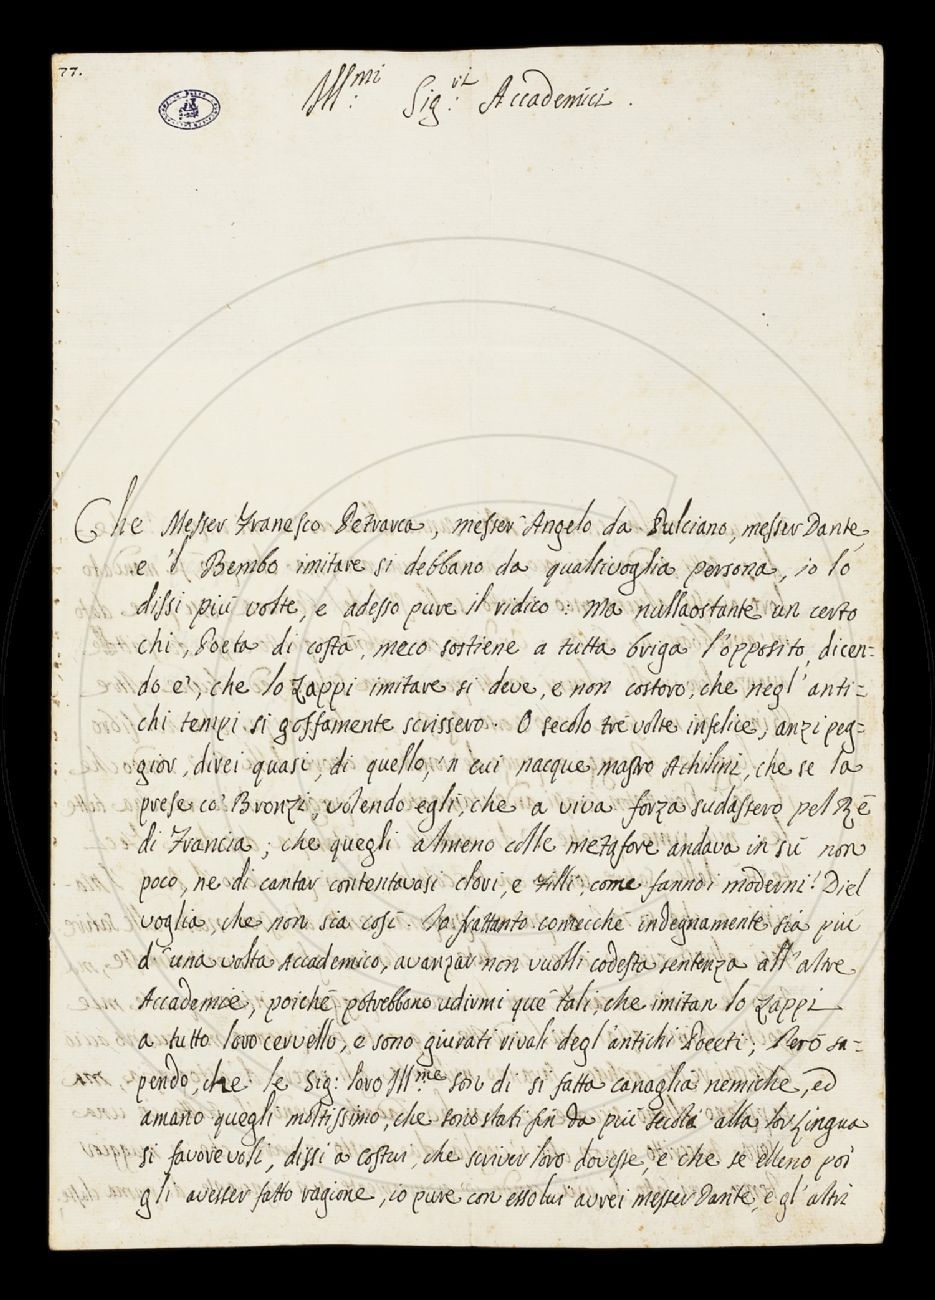 77.
Ill:mi Sig:ri Accademici.
Che Messer Franesco Petrarca, messer Angelo da Pulciano, messer Dante,
e 'l Bembo imitare si debbano da qualsivoglia persona, io lo
dissi più volte, e adesso pure il ridico: ma nullaostante un certo
chi, Poeta di costà, meco sostiene a tutta briga l'opposito, dicen=
do e', che lo Zappi imitare si deve, e non costoro, che negl'anti=
chi tempi si goffamente scrissero. O secolo tre volte infelice, anzi peg=
gior, direi quasi, di quello, 'n cui nacque mastro Achilini, che se la
prese co' Bronzi, volendo egli, che a viva forza sudassero pel Rè
di Francia; che quegli almeno colle metafore andava in sù non
poco, ne di cantar contentavasi clori, e Filli, come fanno i moderni! Diel
voglia, che non sia così. Io frattanto comecchè indegnamente sia più
d'una volta Accademico, avanzar non vuolli codesta sentenza all'altre
Accademie, poichè potrebbono udirmi que' tali, che imitan lo Zappi
a tutto loro cervello, e sono giurati rivali degl'antichi Poeti; Però sa=
pendo, che le Sig: loro Ill:me son di si fatta canaglia nemiche, ed
amano quegli moltissimo, che sono stati fin da più secoli alla lor Lingua
si favorevoli, dissi a costui, che scriver loro dovesse, e che se elleno poi
gli avesser fatto ragione, io pure con essolui avrei messer Dante, e gl'altri